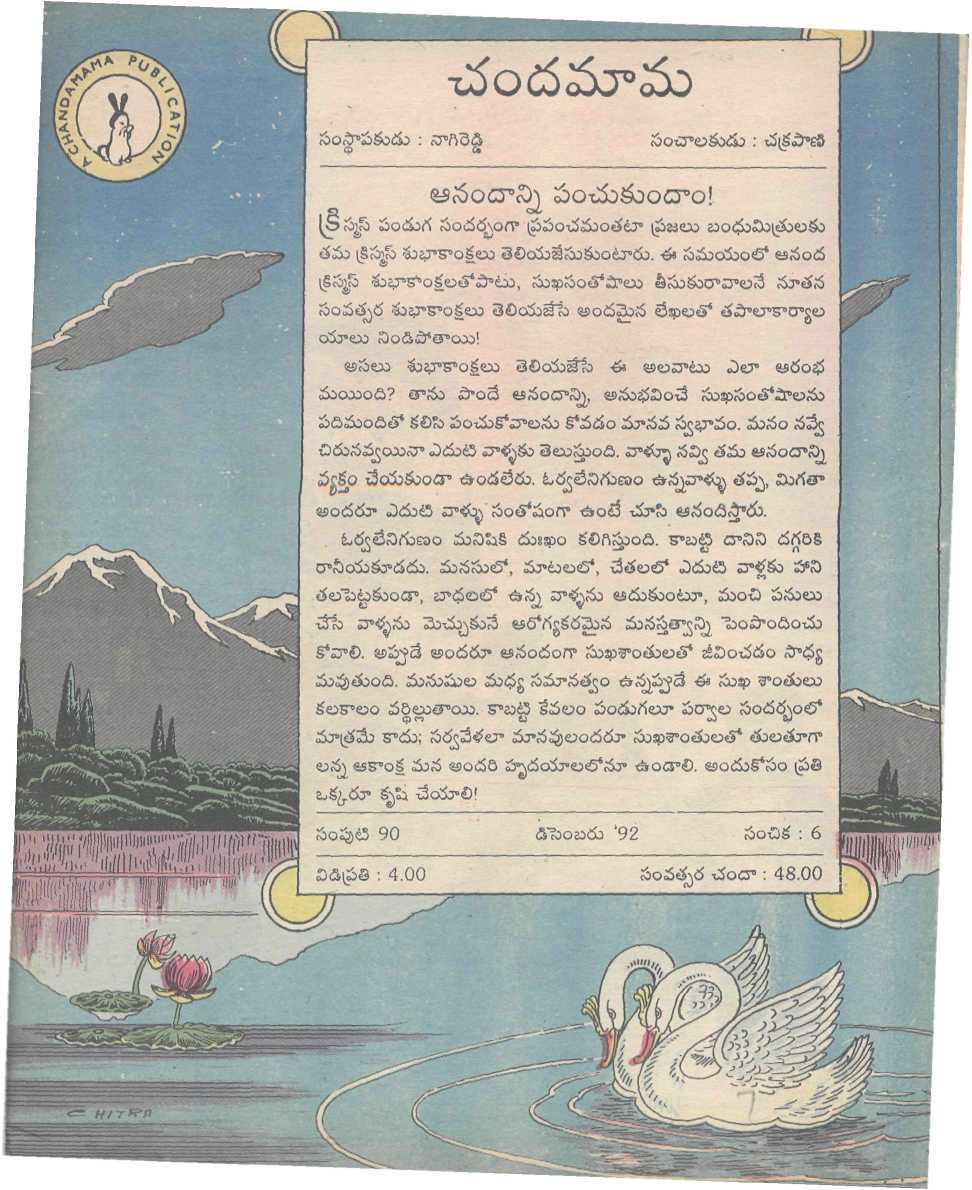 A CHANDAMAMA PUBLICATION
చందమామ
సంస్థాపకుడు : నాగిరెడ్డి సంచాలకుడు : చక్రపాణి
ఆనందాన్ని పంచుకుందాం!
క్రిస్మస్ పండుగ సందర్భంగా ప్రపంచమంతటా ప్రజలు బంధుమిత్రులకు
తమ క్రిస్మస్ శుభాకాంక్షలు తెలియజేసుకుంటారు. ఈ సమయంలో ఆనంద
క్రిస్మస్ శుభాకాంక్షలతోపాటు, సుఖసంతోషాలు తీసుకురావాలనే నూతన
సంవత్సర శుభాకాంక్షలు తెలియజేసే అందమైన లేఖలతో తపాలాకార్యాల
యాలు నిండిపోతాయి!
అసలు శుభాకాంక్షలు తెలియజేసే ఈ అలవాటు ఎలా ఆరంభ
మయింది? తాను పొందే ఆనందాన్ని, అనుభవించే సుఖసంతోషాలను
పదిమందితో కలిసి పంచుకోవాలను కోవడం మానవ స్వభావం. మనం నవ్వే
చిరునవ్వయినా ఎదుటి వాళ్ళకు తెలుస్తుంది. వాళ్ళూ నవ్వి తమ ఆనందాన్ని
వ్యక్తం చేయకుండా ఉండలేరు. ఓర్వలేనిగుణం ఉన్నవాళ్ళు తప్ప, మిగతా
అందరూ ఎదుటి వాళ్ళు సంతోషంగా ఉంటే చూసి ఆనందిస్తారు.
ఓర్వలేనిగుణం మనిషికి దుఃఖం కలిగిస్తుంది. కాబట్టి దానిని దగ్గరికి
రానీయకూడదు. మనసులో, మాటలలో, చేతలలో ఎదుటి వాళ్లకు హాని
తలపెట్టకుండా, బాధలలో ఉన్న వాళ్ళను ఆదుకుంటూ, మంచి పనులు
చేసే వాళ్ళను మెచ్చుకునే ఆరోగ్యకరమైన మనస్తత్వాన్ని పెంపొందించు
కోవాలి. అప్పుడే అందరూ ఆనందంగా సుఖశాంతులతో జీవించడం సాధ్య
మవుతుంది. మనుషుల మధ్య సమానత్వం ఉన్నప్పుడే ఈ సుఖ శాంతులు
కలకాలం వర్థిల్లుతాయి. కాబట్టి కేవలం పండుగలూ పర్వాల సందర్భంలో
మాత్రమే కాదు; సర్వవేళలా మానవులందరూ సుఖశాంతులతో తులతూగా
లన్న ఆకాంక్ష మన అందరి హృదయాలలోనూ ఉండాలి. అందుకోసం ప్రతి
ఒక్కరూ కృషి చేయాలి!
సంపుటి 90 డిసెంబరు '92 సంచిక : 6
విడిప్రతి : 4.00 సంవత్సర చందా : 48.00
CHITRA